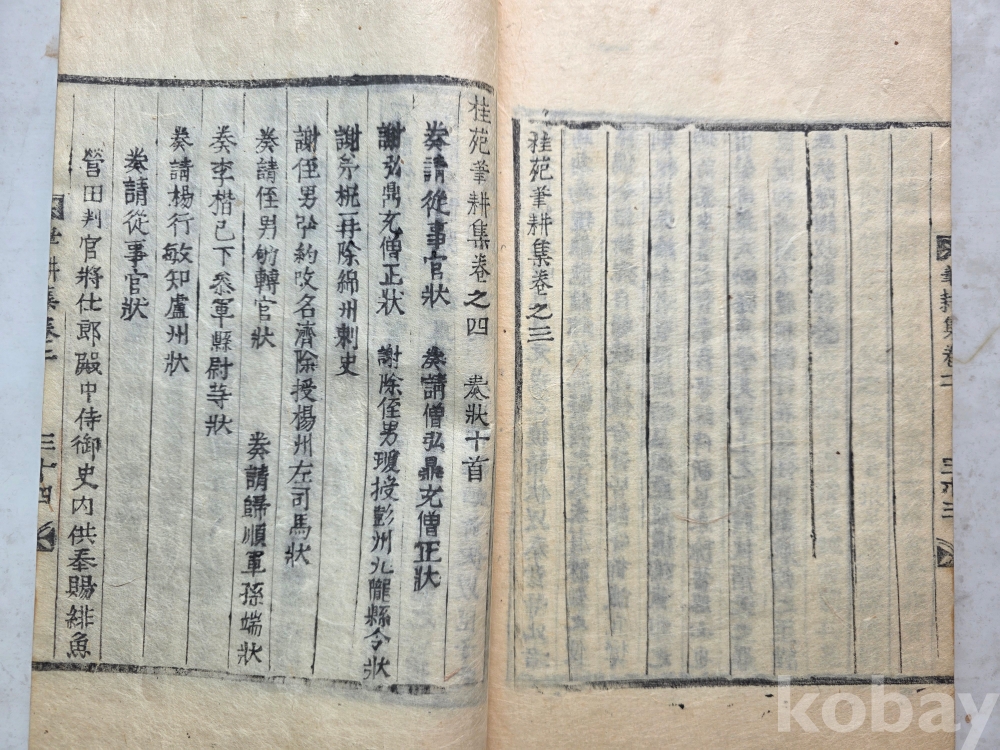 筆耕集卷
桂苑筆耕集卷之三
桂苑筆耕集卷之四 奏狀十首
奏請從事官狀 奏請僧弘鼎充僧正狀
謝弘鼎充僧正狀 謝除侄男瓊授彭州九隴縣令狀
謝弟柷再除綿州刺史
謝侄男弘約改名濟除授楊州左司馬狀
奏請侄男勑轉官狀 奏請歸順軍孫端狀
奏李楷已下叅軍縣尉等狀
奏請楊行敏知盧州狀
奏請從事官狀
營田判官將仕郎殿中侍御史內供奉賜緋魚
三十四
kobay